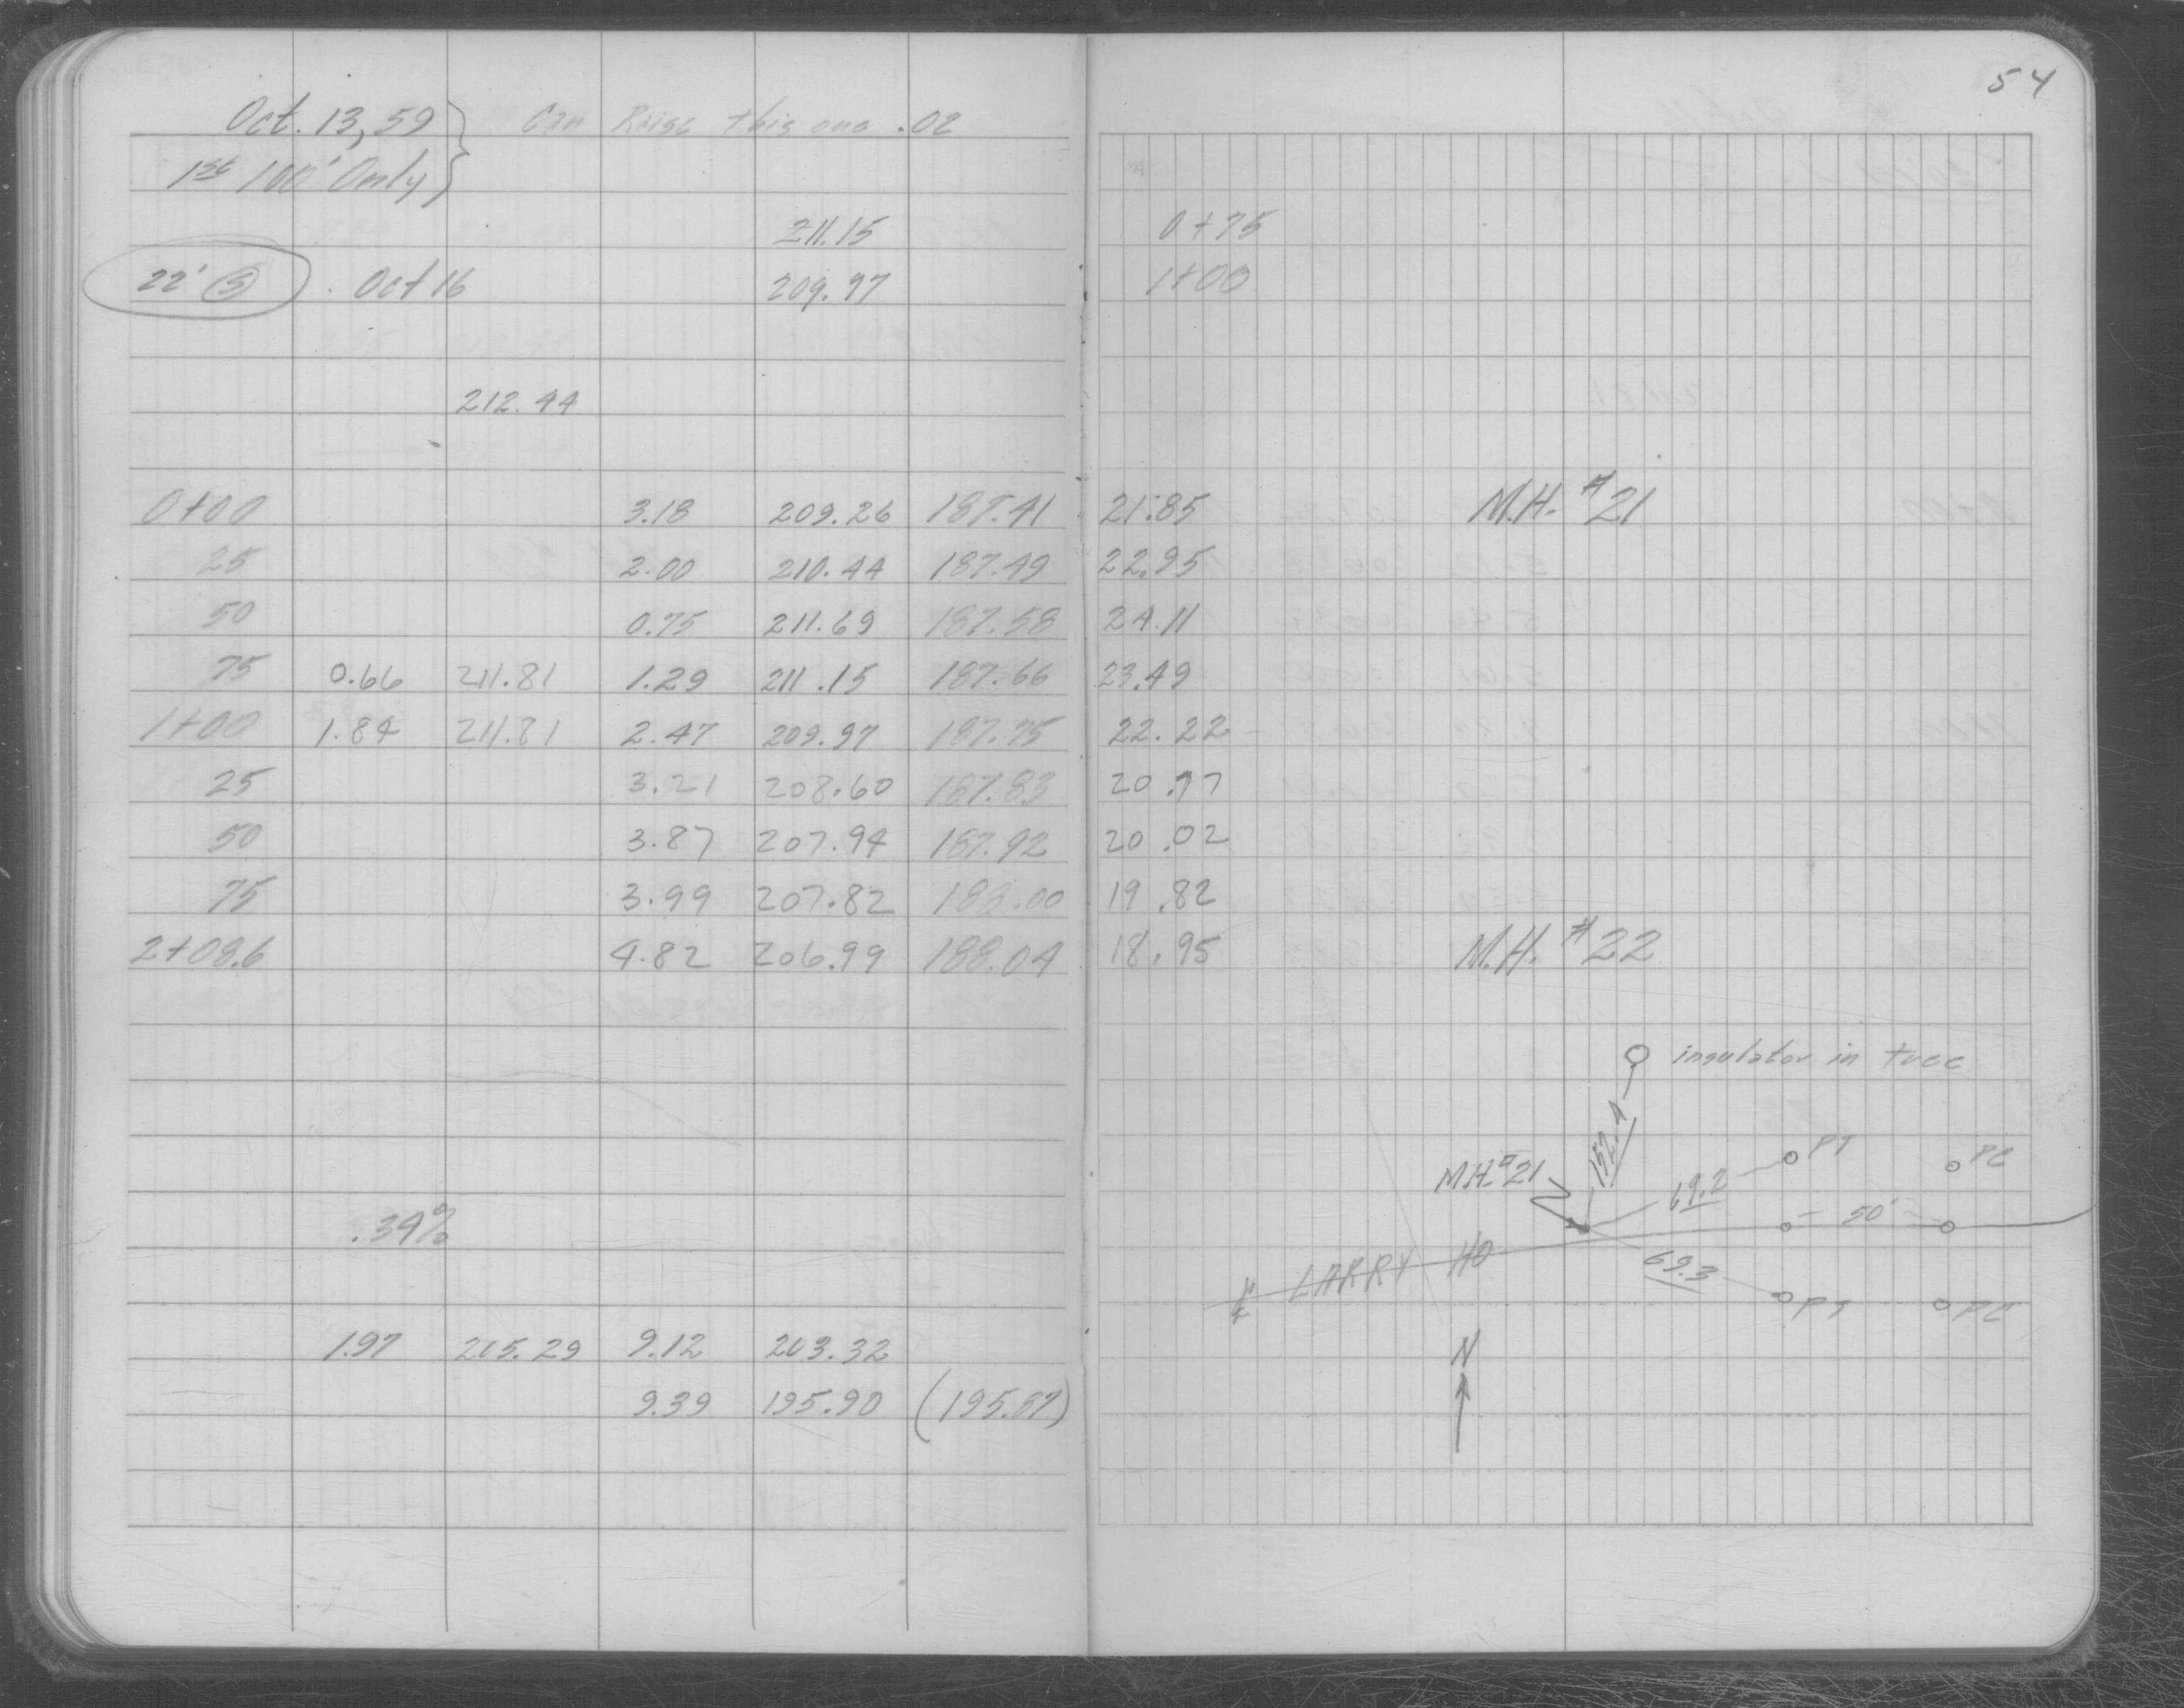 54
Oct. 13, 59 } Can Raise this one .02
1st 100' Only }
211.15 0+75
22' (S) . Oct 16 209.97 1+00
212.44
0+00 3.18 209.26 187.41 21.85 M.H. #21
25 2.00 210.44 187.49 22.95
50 0.75 211.69 187.58 24.11
75 0.66 211.81 1.29 211.15 187.66 23.49
1+00 1.84 211.81 2.47 209.97 187.75 22.22
25 3.21 208.60 187.83 20.77
50 3.87 207.94 187.92 20.02
75 3.99 207.82 188.00 19.82
2+08.6 4.82 206.99 188.04 18.95 M.H. #22
insulator in tree
152.4
M.H. #21 69.2 PT PC
50'
.34%
℄ LARRY HO 69.3 PT PC
N
1.97 205.29 9.12 203.32
9.39 195.90 (195.87)